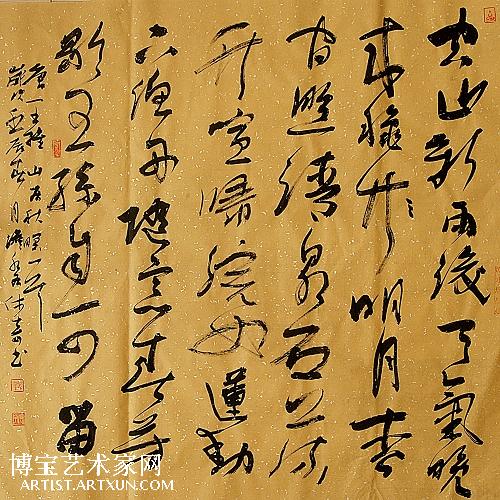 空山新雨後天氣晚
来穐明月松
间照清泉石上流
竹喧歸浣女蓮動
下漁舟随意春芳
歇王孫自可留
唐王維山居秋暝一首
歲次辰春月书
博宝艺术家网
ARTIST.ARTXUN.COM